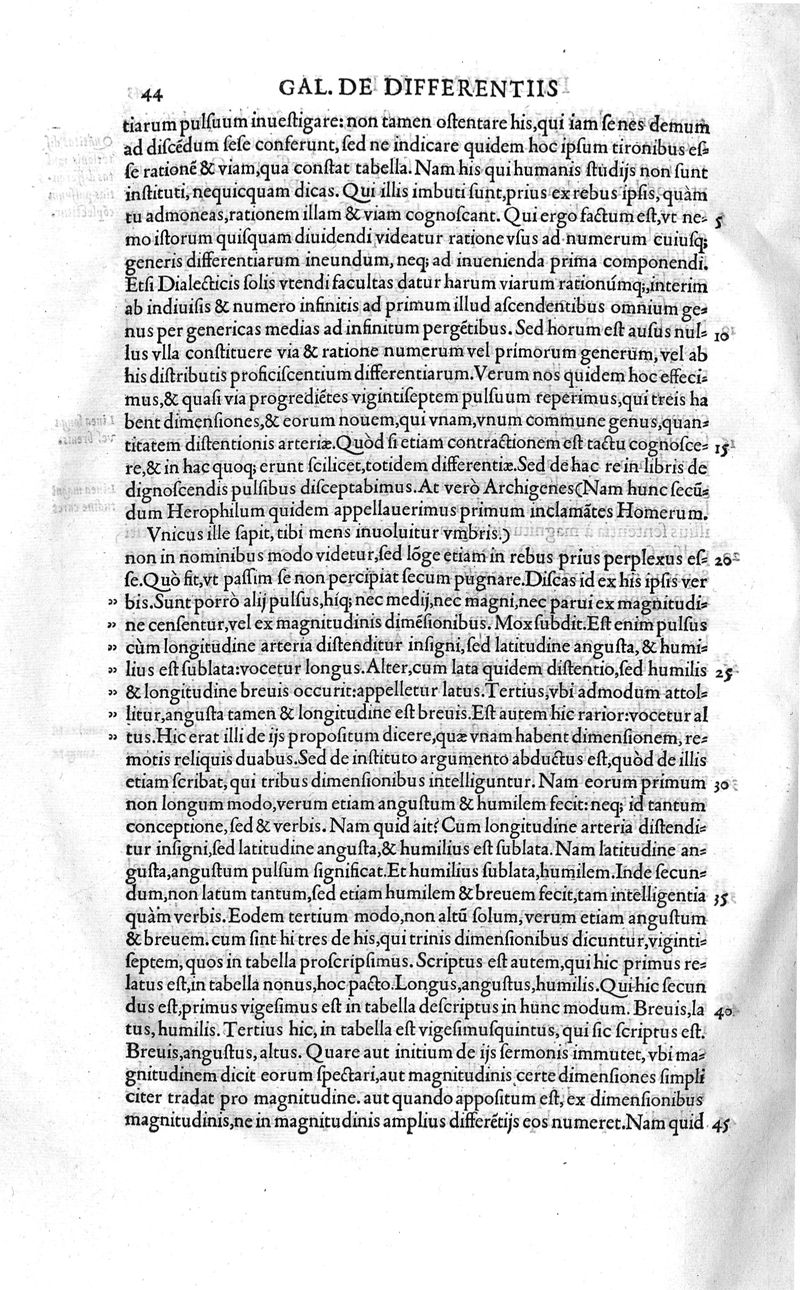 44 GAL. DE DIFFERENTIIS
tiarum pulsuum inuestigare: non tamen ostentare his, qui iam senes demum
ad discẽdum sese conferunt, sed ne indicare quidem hoc ipsum tironibus es-
se rationẽ & viam, qua constat tabella. Nam his qui humanis studijs non sunt
instituti, nequicquam dicas. Qui illis imbuti sunt, prius ex rebus ipsis, quàm
tu admoneas, rationem illam & viam cognoscant. Qui ergo factum est, vt ne- 5
mo istorum quisquam diuidendi videatur ratione vsus ad numerum cuiusq;
generis differentiarum ineundum, neq; ad inuenienda prima componendi.
Etsi Dialecticis solis vtendi facultas datur harum viarum rationúmq;, interim
ab indiuisis & numero infinitis ad primum illud ascendentibus omnium ge-
nus per genericas medias ad infinitum pergẽtibus. Sed horum est ausus nul- 10
lus vlla constituere via & ratione numerum vel primorum generum, vel ab
his distributis proficiscentium differentiarum. Verum nos quidem hoc effeci-
mus, & quasi via progrediẽtes vigintiseptem pulsuum reperimus, qui treis ha
bent dimensiones, & eorum nouem, qui vnam, vnum commune genus, quan-
titatem distentionis arteriæ. Quòd si etiam contractionem est tactu cognosce- 15
re, & in hac quoq; erunt scilicet, totidem differentiæ. Sed de hac re in libris de
dignoscendis pulsibus disceptabimus. At verò Archigenes (Nam hunc secũ-
dum Herophilum quidem appellauerimus primum inclamãtes Homerum.
Vnicus ille sapit, tibi mens inuoluitur vmbris.)
non in nominibus modo videtur, sed lõge etiam in rebus prius perplexus es- 20
se. Quò fit, vt passim se non percipiat secum pugnare. Discas id ex his ipsis ver
" bis. Sunt porrò alij pulsus, híq; nec medij, nec magni, nec parui ex magnitudi-
" ne censentur, vel ex magnitudinis dimẽsionibus. Mox subdit. Est enim pulsus
" cùm longitudine arteria distenditur insigni, sed latitudine angusta, & humi-
" lius est sublata: vocetur longus. Alter, cum lata quidem distentio, sed humilis 25
" & longitudine breuis occurit: appelletur latus. Tertius, vbi admodum attol-
" litur, angusta tamen & longitudine est breuis. Est autem hic rarior: vocetur al
" tus. Hic erat illi de ijs propositum dicere, quæ vnam habent dimensionem, re-
motis reliquis duabus. Sed de instituto argumento abductus est, quòd de illis
etiam scribat, qui tribus dimensionibus intelliguntur. Nam eorum primum 30
non longum modo, verum etiam angustum & humilem fecit: neq; id tantum
conceptione, sed & verbis. Nam quid ait? Cum longitudine arteria distendi-
tur insigni, sed latitudine angusta, & humilius est sublata. Nam latitudine an-
gusta, angustum pulsum significat. Et humilius sublata, humilem. Inde secun-
dum, non latum tantum, sed etiam humilem & breuem fecit, tam intelligentia 35
quàm verbis. Eodem tertium modo, non altũ solum, verum etiam angustum
& breuem. cum sint hi tres de his, qui trinis dimensionibus dicuntur, viginti-
septem, quos in tabella proscripsimus. Scriptus est autem, qui hic primus re-
latus est, in tabella nonus, hoc pacto. Longus, angustus, humilis. Qui hic secun
dus est, primus vigesimus est in tabella descriptus in hunc modum. Breuis, la 40
tus, humilis. Tertius hic, in tabella est vigesimusquintus, qui sic scriptus est.
Breuis, angustus, altus. Quare aut initium de ijs sermonis immutet, vbi ma-
gnitudinem dicit eorum spectari, aut magnitudinis certe dimensiones simpli
citer tradat pro magnitudine. aut quando appositum est, ex dimensionibus
magnitudinis, ne in magnitudinis amplius differẽtijs eos numeret. Nam quid 45